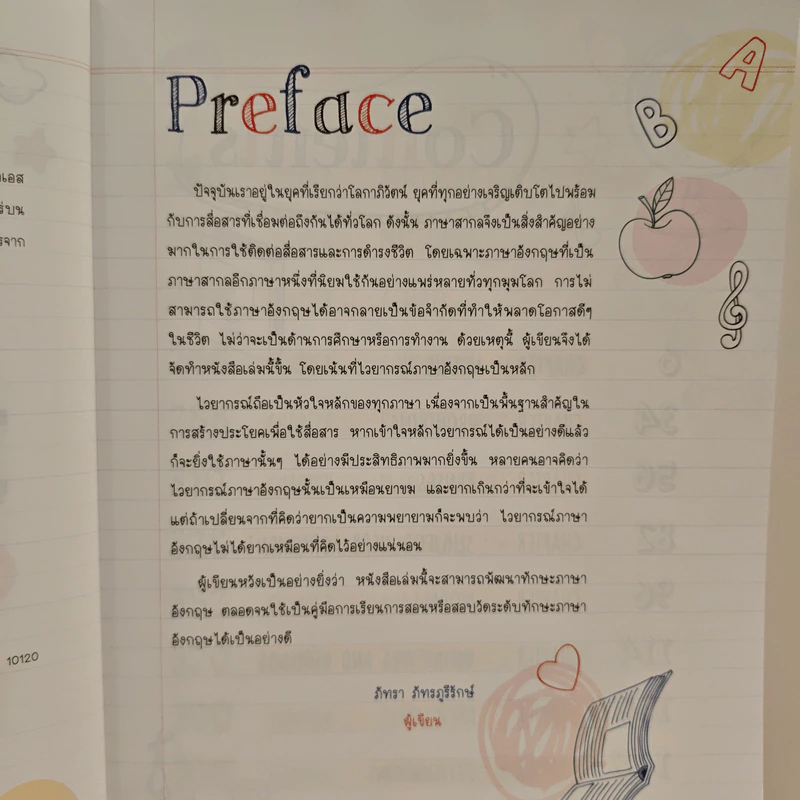 Preface
A
B
ปัจจุบันเราอยู่ในยุคที่เรียกว่าโลกาภิวัตน์ ยุคที่ทุกอย่างเจริญเติบโตไปพร้อม
กับการสื่อสารที่เชื่อมต่อถึงกันได้ทั่วโลก ดังนั้น ภาษาสากลจึงเป็นสิ่งสำคัญอย่าง
มากในการใช้ติดต่อสื่อสารและการดำรงชีวิต โดยเฉพาะภาษาอังกฤษที่เป็น
ภาษาสากลอีกภาษาหนึ่งที่นิยมใช้กันอย่างแพร่หลายทั่วทุกมุมโลก การไม่
สามารถใช้ภาษาอังกฤษได้อาจกลายเป็นข้อจำกัดที่ทำให้พลาดโอกาสดีๆ
ในชีวิต ไม่ว่าจะเป็นด้านการศึกษาหรือการทำงาน ด้วยเหตุนี้ ผู้เขียนจึงได้
จัดทำหนังสือเล่มนี้ขึ้น โดยเน้นที่ไวยากรณ์ภาษาอังกฤษเป็นหลัก
ไวยากรณ์ถือเป็นหัวใจหลักของทุกภาษา เนื่องจากเป็นพื้นฐานสำคัญใน
การสร้างประโยคเพื่อใช้สื่อสาร หากเข้าใจหลักไวยากรณ์ได้เป็นอย่างดีแล้ว
ก็จะยิ่งใช้ภาษานั้นๆ ได้อย่างมีประสิทธิภาพมากยิ่งขึ้น หลายคนอาจคิดว่า
ไวยากรณ์ภาษาอังกฤษนั้นเป็นเหมือนยาขม และยากเกินกว่าที่จะเข้าใจได้
แต่ถ้าเปลี่ยนจากที่คิดว่ายากเป็นความพยายามก็จะพบว่า ไวยากรณ์ภาษา
อังกฤษไม่ได้ยากเหมือนที่คิดไว้อย่างแน่นอน
ผู้เขียนหวังเป็นอย่างยิ่งว่า หนังสือเล่มนี้จะสามารถพัฒนาทักษะภาษา
อังกฤษ ตลอดจนใช้เป็นคู่มือการเรียนการสอนหรือสอบวัดระดับทักษะภาษา
อังกฤษได้เป็นอย่างดี
ภัทรา ภัทรภูรีรักษ์
ผู้เขียน
10120